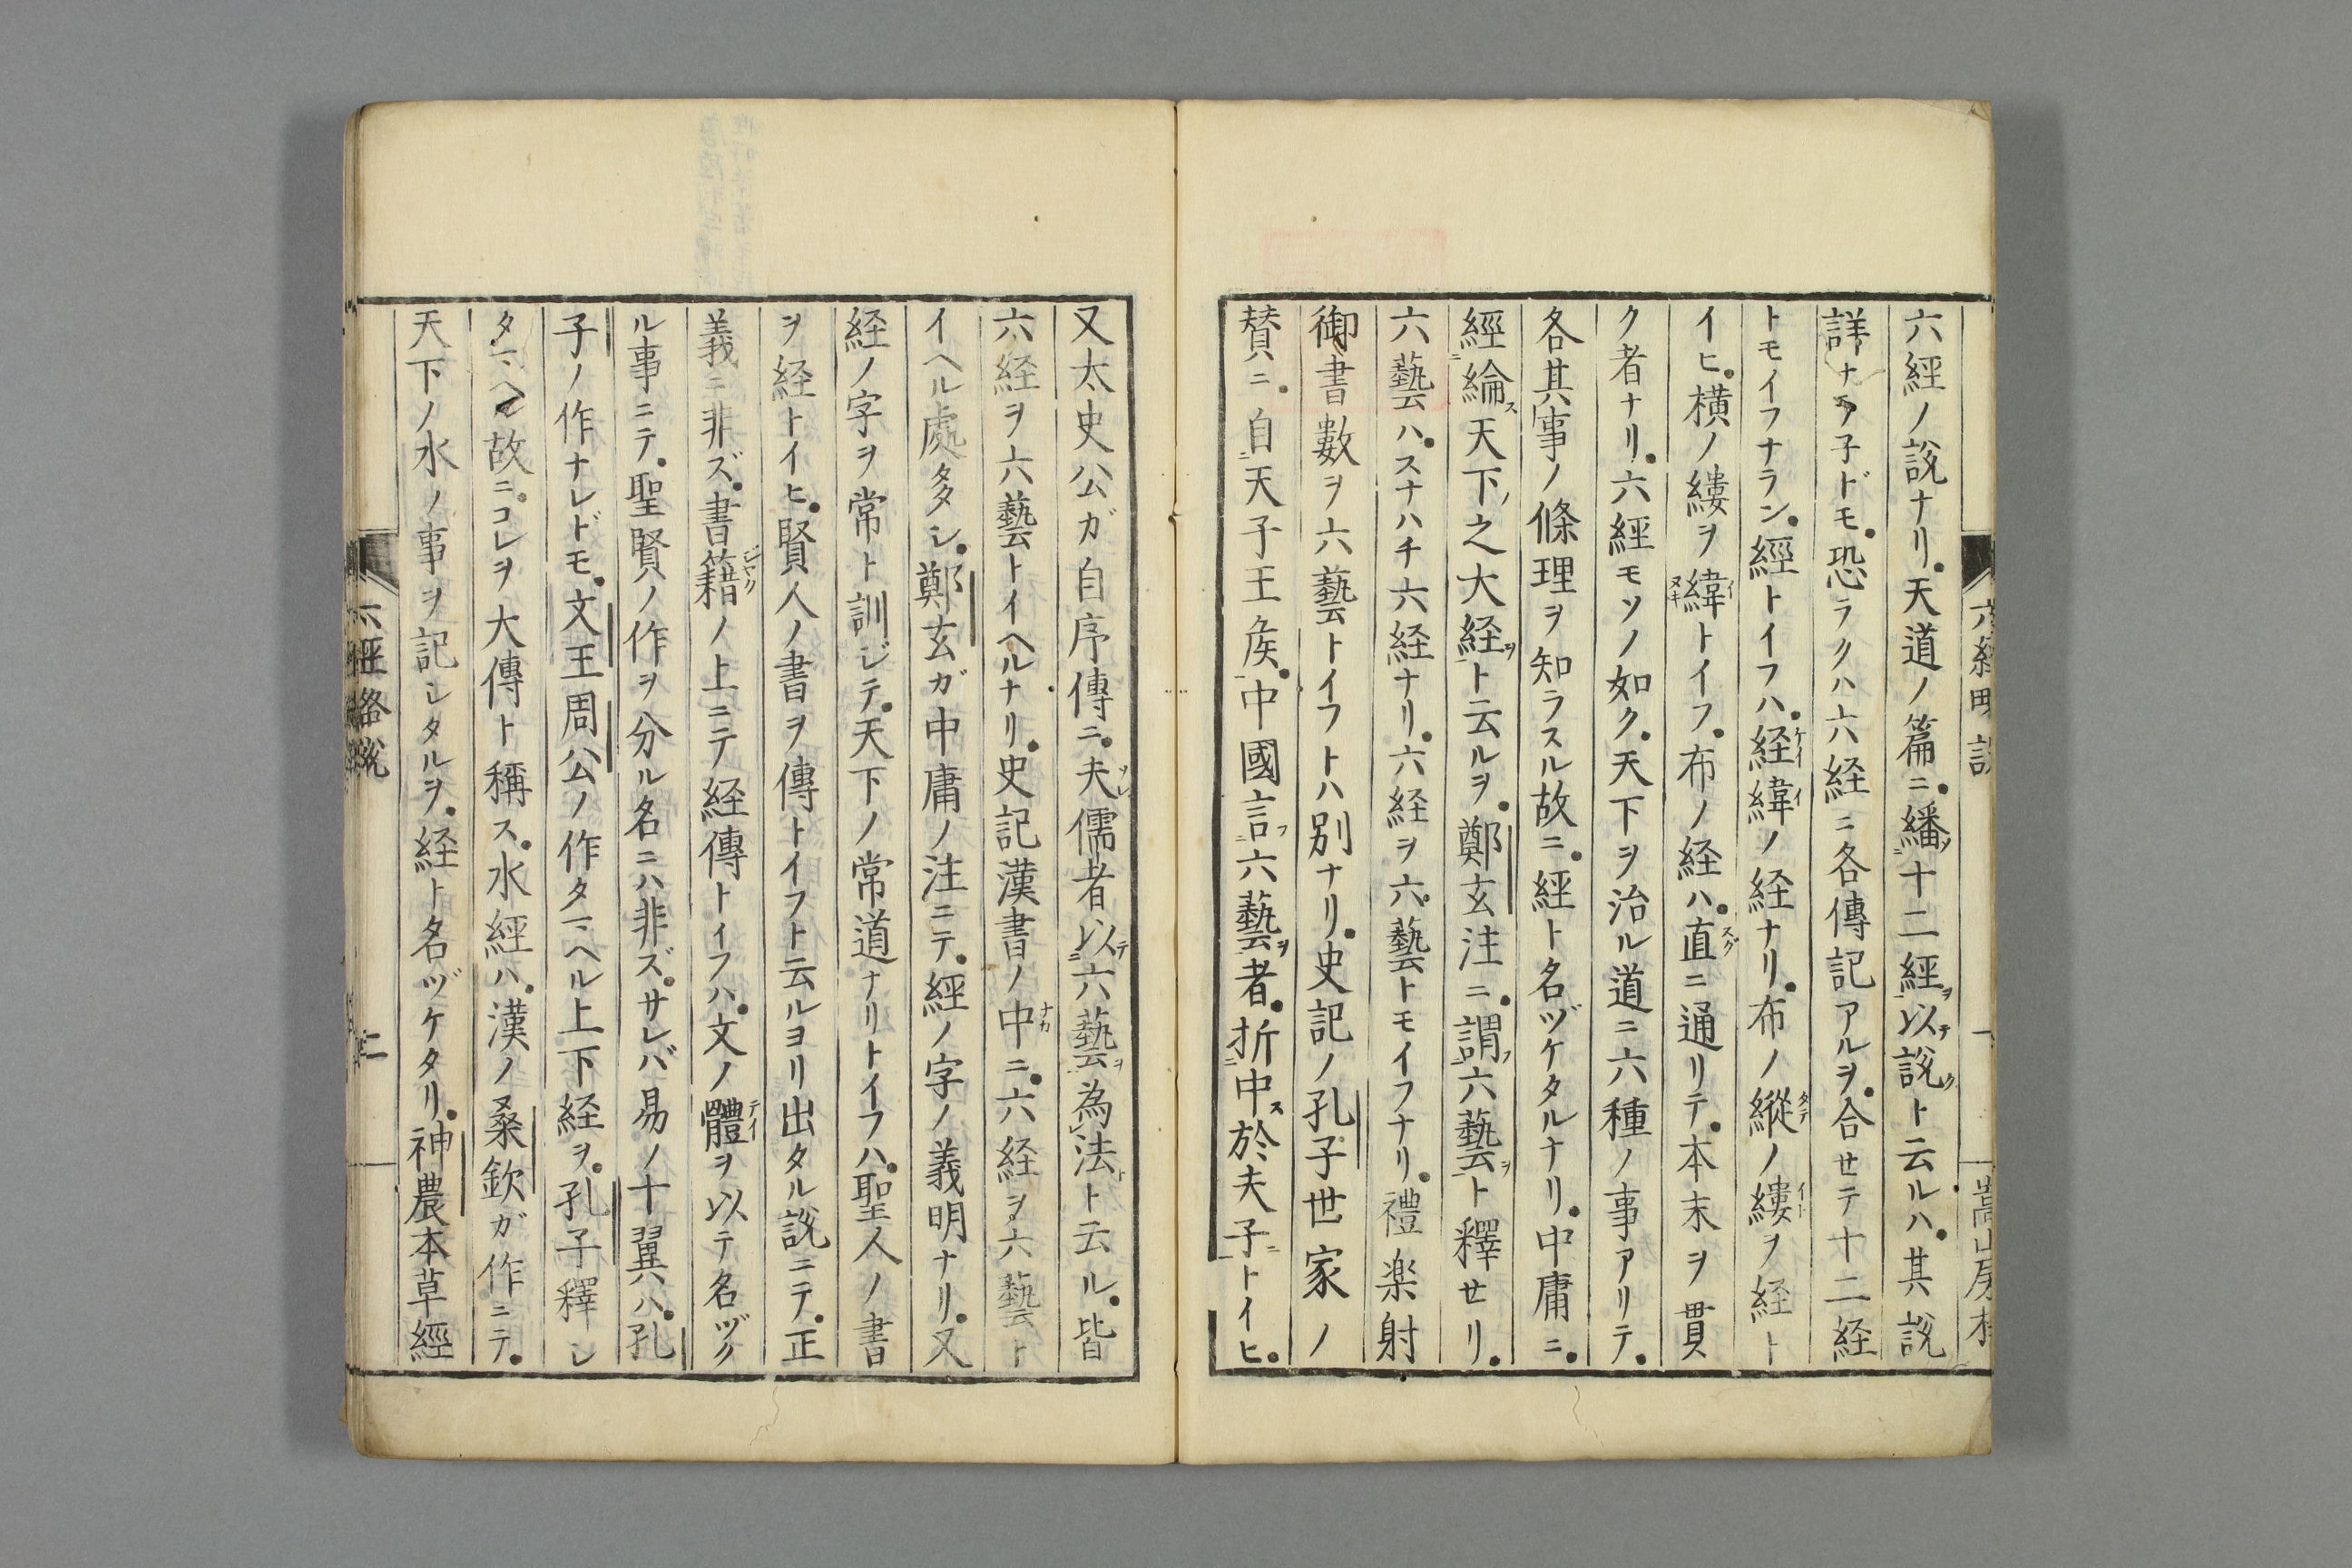 六經ノ說ナリ。天道ノ篇ニ。繙十二經ヲ以テ說クト云ルハ。其說
詳ナラ子ドモ。恐ラクハ六経ニ各傳記アルヲ。合セテ十二経
トモイフナラン。經トイフハ。経緯ノ経ナリ。布ノ縱ノ縷ヲ経ト
イヒ。横ノ縷ヲ緯トイフ。布ノ経ハ。直ニ通リテ。本末ヲ貫
ク者ナリ。六經モソノ如ク。天下ヲ治ル道ニ六種ノ事アリテ。
各其事ノ條理ヲ知ラスル故ニ。經ト名ヅケタルナリ。中庸ニ。
經綸ス天下ノ之大経ヲト云ルヲ。鄭玄注ニ。謂フ六藝ヲト釋セリ。
六藝ハ。スナハチ六経ナリ。六経ヲ六藝トモイフナリ。禮楽射
御書數ヲ六藝トイフトハ別ナリ。史記ノ孔子世家ノ
賛ニ。自天子王矦。中國言フ六藝ヲ者。折中ス於夫子ニトイヒ。
又太史公ガ自序傳ニ。夫儒者以テ六藝ヲ為法トト云ル。皆
六経ヲ六藝トイヘルナリ。史記漢書ノ中ニ。六経ヲ六藝ト
イヘル處多シ。鄭玄ガ中庸ノ注ニテ。經ノ字ノ義明ナリ。又
経ノ字ヲ常ト訓ジテ。天下ノ常道ナリトイフハ。聖人ノ書
ヲ経トイヒ。賢人ノ書ヲ傳トイフト云ルヨリ出タル說ニテ。正
義ニ非ズ。書籍ノ上ニテ経傳トイフハ。文ノ體ヲ以テ名ヅク
ル事ニテ。聖賢ノ作ヲ分ル名ニハ非ズ。サレバ易ノ十翼ハ。孔
子ノ作ナレドモ。文王周公ノ作タマヘル上下経ヲ。孔子釋シ
タマヘル故ニ。コレヲ大傳ト稱ス。水經ハ。漢ノ桑欽ガ作ニテ。
天下ノ水ノ事ヲ記シタルヲ。経ト名ヅケタリ。神農本草經
六經略說
二